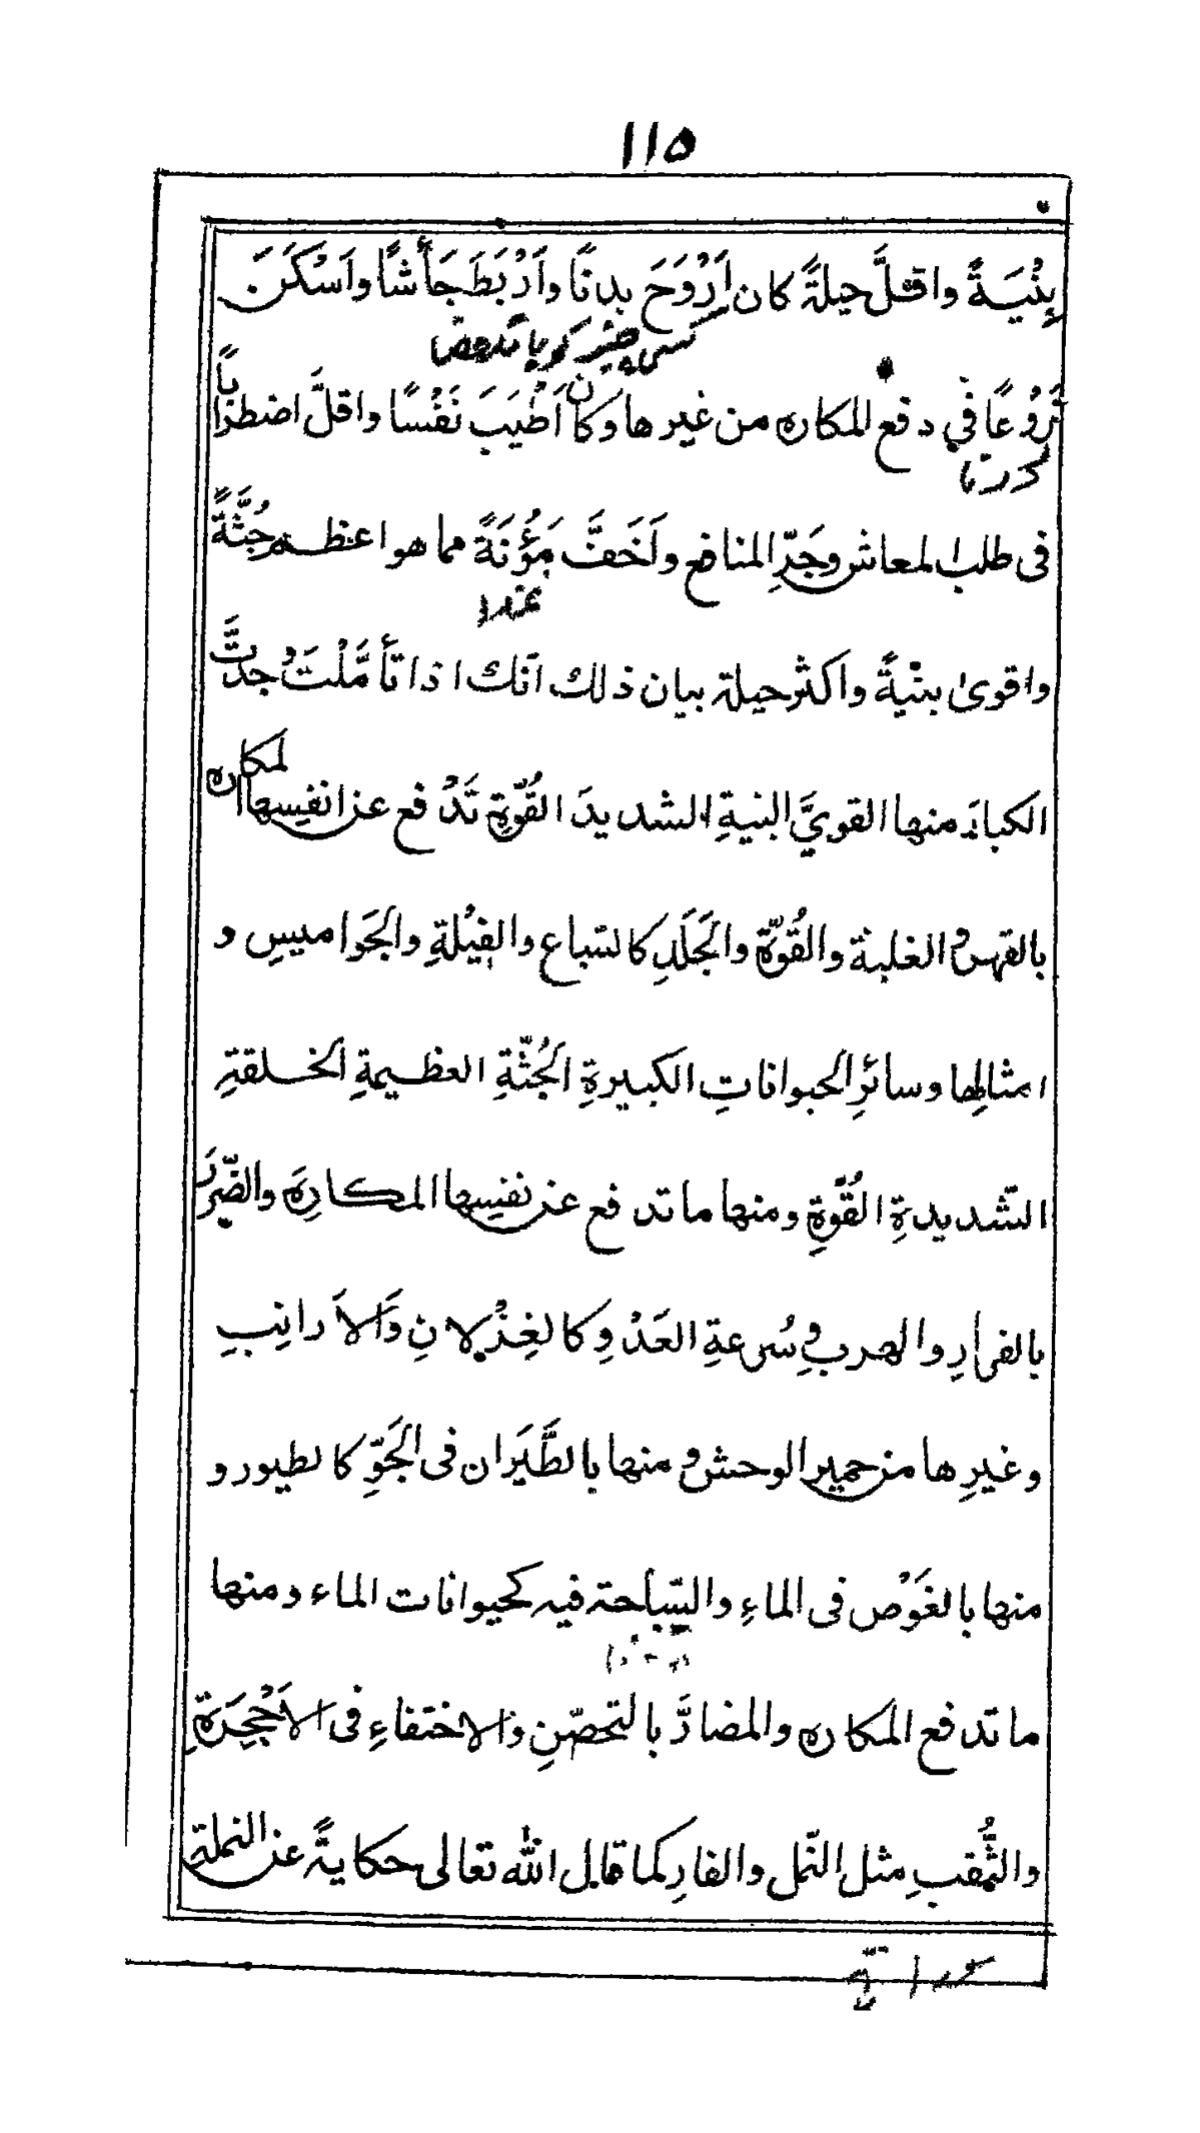 ١١٥
بِنْيَةً واقلَّ حيلةً كان اَرْوَحَ بدنًا واَرْبَطَ جَأشًا واَسْكَنَ
رُوعًا في دفع المكاره من غيرها وكان اَطْيَبَ نَفْسًا واقلَّ اضطرابًا
فى طلب المعاش وجَرِّ المنافع واَخَفَّ مَؤُنَةً مما هو اعظم جُثَّةً
واقوىٰ بنْيةً واكثر حيلة بيان ذلك انّك اذا تأمَّلْتَ وُجدتَّ
الكبارَ منها القويَّ البنيةِ الشديدَ القُوّةِ تَدْفع عن انفسِها المكاره
بالقهر والغلبة والقُوّة والجَلَدِ كالسّباع والفِيْلةِ والجَواميسِ و
امثالِها وسائرِ الحيواناتِ الكبيرةِ الجُثّةِ العظيمةِ الخلقةِ
الشّديدةِ القُوَّةِ ومنها ما تدفع عن نفسِها المكارِهَ والضّررَ
بالفرارِ والهرب وسُرعةِ العَدْوِ كالغِزْلانِ وَالاَرانِبِ
وغيرِها من حميرِ الوحش ومنها بالطَّيَران فى الجَوِّ كالطيور و
منها بالغَوْص فى الماءِ والسِّباحة فيه كحيوانات الماء ومنها
ما تدفع المكاره والمضارَّ بالتحصّنِ والاختفاءِ فى الاَجْحِرَةِ
والثُّقبِ مثل النّمل والفارِ كما قال الله تعالى حكايةً عن النملةِ